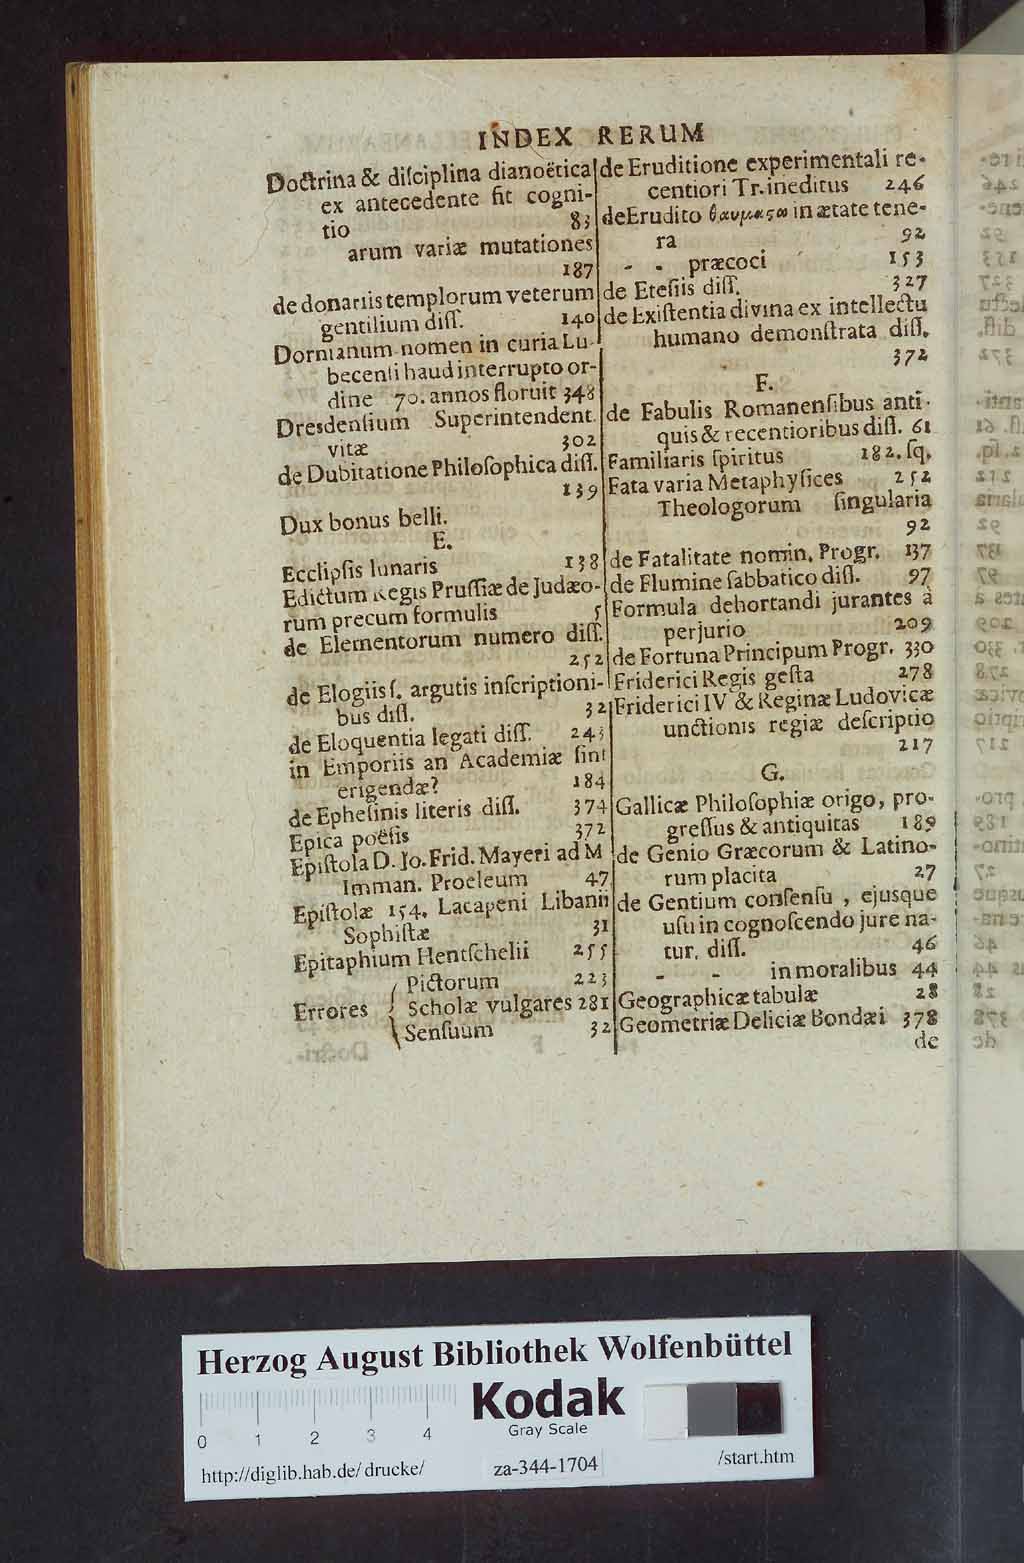 INDEX RERUM
Doctrina & diſciplina dianoëtica
ex antecedente fit cogni-
tio 83
arum variæ mutationes
187
de donariis templorum veterum
gentilium diſſ. 140
Dornianum nomen in curia Lu-
becenſi haud interrupto or-
dine 70. annos floruit 348
Dresdenſium Superintendent.
vitæ 302
de Dubitatione Philoſophica diſſ.
139
Dux bonus belli.
E.
Ecclipſis lunaris 138
Edictum Regis Pruſſiæ de Judæo-
rum precum formulis 5
de Elementorum numero diſſ.
252
de Elogiis ſ. argutis inſcriptioni-
bus diſſ. 32
de Eloquentia legati diſſ. 243
in Emporiis an Academiæ ſint
erigendæ? 184
de Epheſinis literis diſſ. 374
Epica poëſis 372
Epiſtola D. Jo. Frid. Mayeri ad M
Imman. Proeleum 47
Epiſtolæ 154. Lacapeni Libanii
Sophiſtæ 31
Epitaphium Hentſchelii 255
Pictorum 223
Errores { Scholæ vulgares 281
Senſuum 32
de Eruditione experimentali re-
centiori Tr. ineditus 246
de Erudito θαυμαςω in ætate tene-
ra 92
- - præcoci 153
de Eteſiis diſſ. 327
de Exiſtentia divina ex intellectu
humano demonſtrata diſſ.
372
F.
de Fabulis Romanenſibus anti-
quis & recentioribus diſſ. 61
Familiaris ſpiritus 182. ſq.
Fata varia Metaphyſices 252
Theologorum ſingularia
92
de Fatalitate nomin. Progr. 137
de Flumine ſabbatico diſſ. 97
Formula dehortandi jurantes à
perjurio 209
de Fortuna Principum Progr. 330
Friderici Regis geſta 278
Friderici IV & Reginæ Ludovicæ
unctionis regiæ deſcriptio
217
G.
Gallicæ Philoſophiæ origo, pro-
greſſus & antiquitas 189
de Genio Græcorum & Latino-
rum placita 27
de Gentium conſenſu, ejusque
uſu in cognoſcendo jure na-
tur. diſſ. 46
- - in moralibus 44
Geographicæ tabulæ 28
Geometriæ Deliciæ Bondæi 378
de
Herzog August Bibliothek Wolfenbüttel
Kodak
Gray Scale
0 1 2 3 4
http://diglib.hab.de/drucke/ za-344-1704 /start.htm